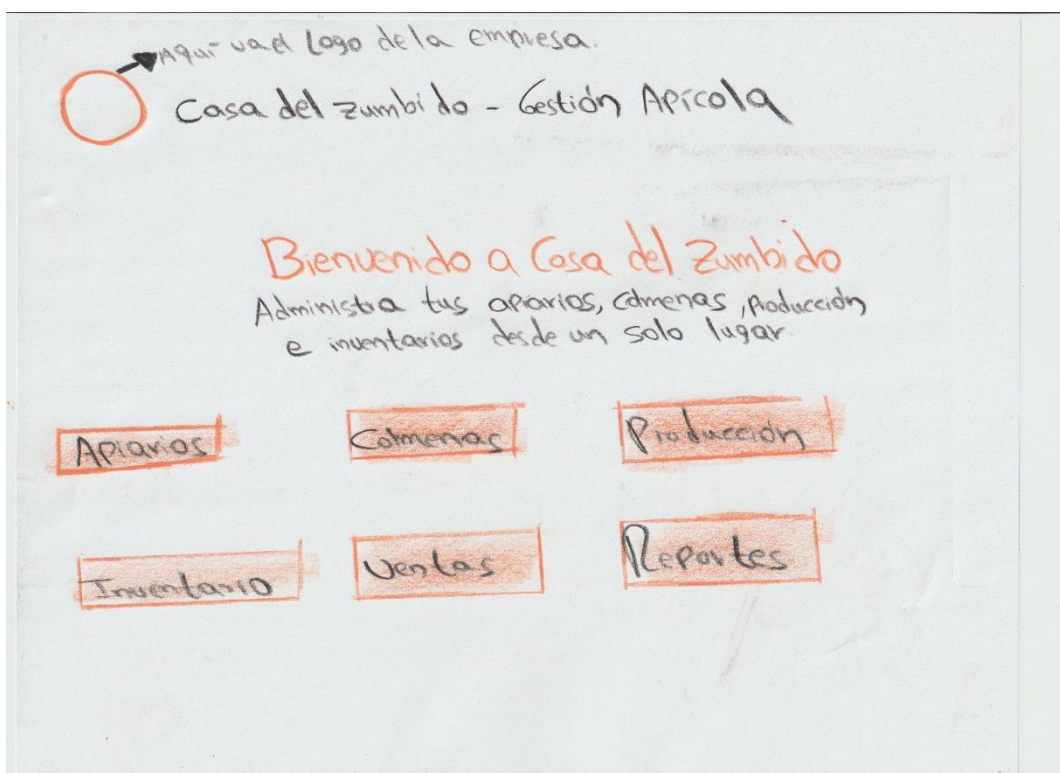 Aquí va el Logo de la empresa.
Casa del zumbido - Gestión Apícola
Bienvenido a Casa del Zumbido
Administra tus apiarios, colmenas, producción
e inventarios desde un solo lugar.
Apiarios
Colmenas
Producción
Inventario
Ventas
Reportes